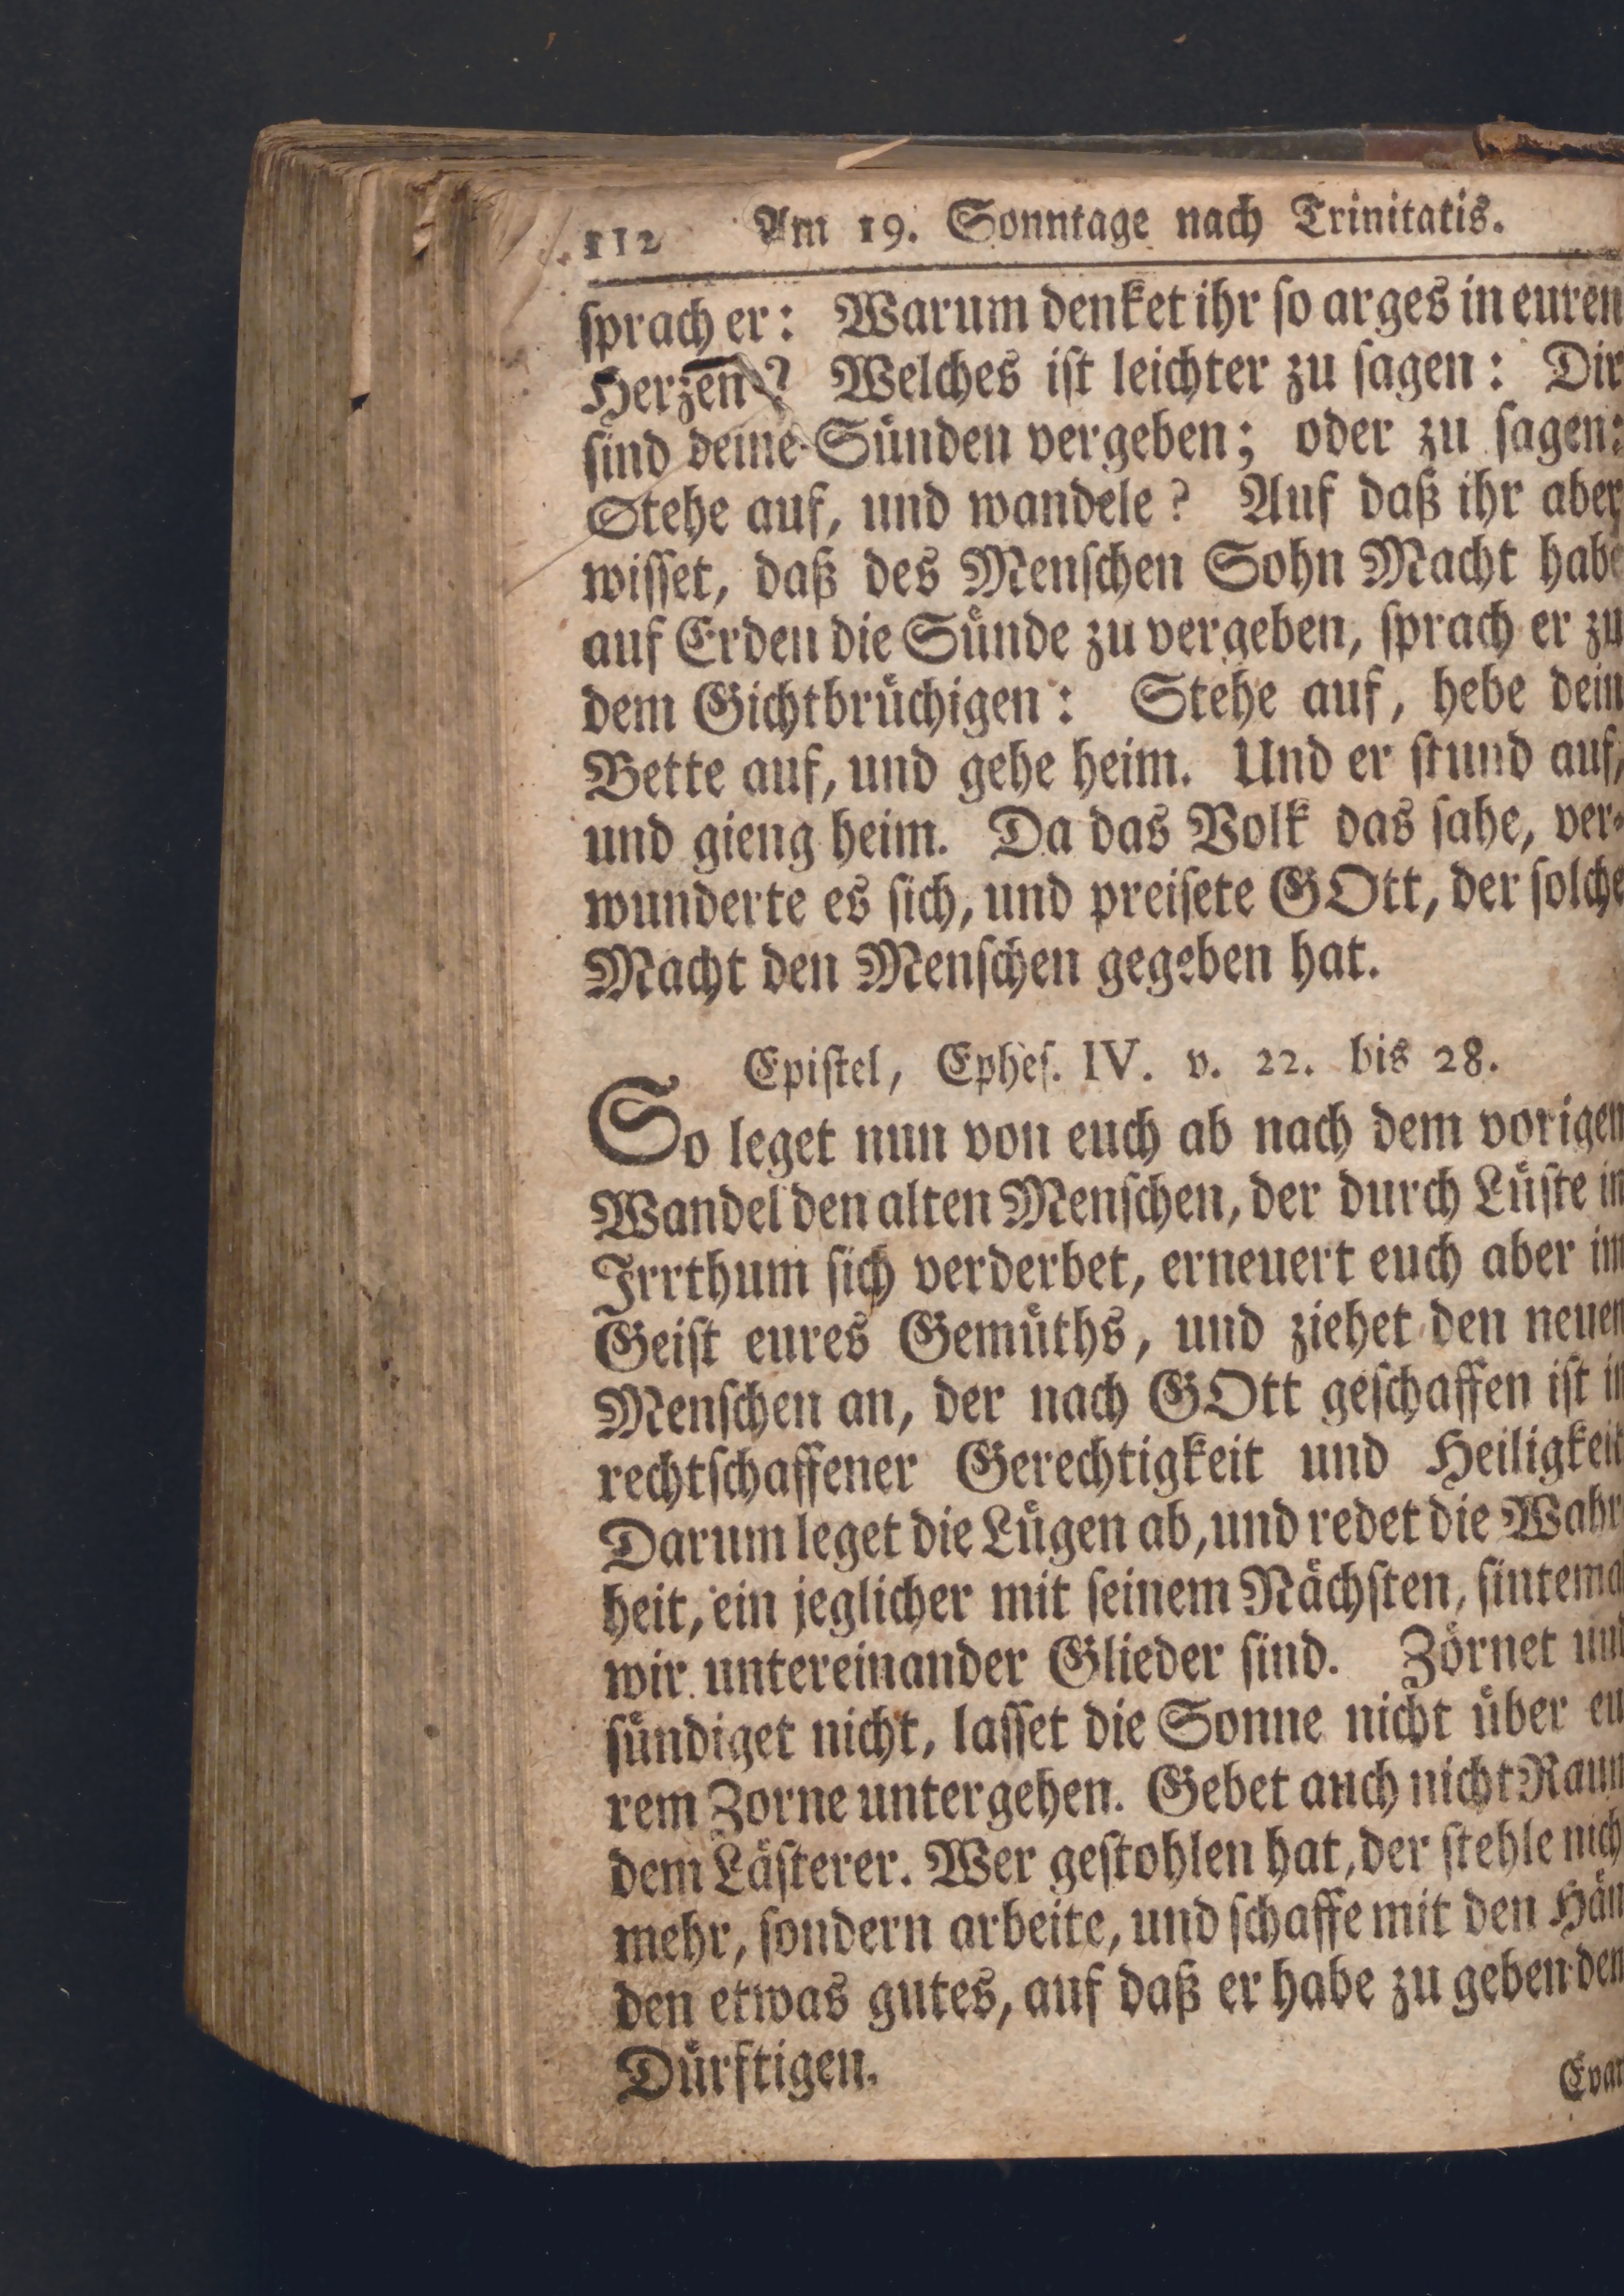 112 Am 19. Sonntage nach Trinitatis.
sprach er: Warum denket ihr so arges in euren
Herzen? Welches ist leichter zu sagen: Dir
sind deine Sünden vergeben; oder zu sagen:
Stehe auf, und wandele? Auf daß ihr aber
wisset, daß des Menschen Sohn Macht habe
auf Erden die Sünde zu vergeben, sprach er zu
dem Gichtbrüchigen: Stehe auf, hebe dein
Bette auf, und gehe heim. Und er stund auf,
und gieng heim. Da das Volk das sahe, ver-
wunderte es sich, und preisete GOtt, der solche
Macht den Menschen gegeben hat.
Epistel, Ephes. IV. v. 22. bis 28.
So leget nun von euch ab nach dem vorigen
Wandel den alten Menschen, der durch Lüste in
Irrthum sich verderbet, erneuert euch aber im
Geist eures Gemüths, und ziehet den neuen
Menschen an, der nach GOtt geschaffen ist in
rechtschaffener Gerechtigkeit und Heiligkeit
Darum leget die Lügen ab, und redet die Wahr
heit, ein jeglicher mit seinem Nächsten, sintema
wir untereinander Glieder sind. Zörnet und
sündiget nicht, lasset die Sonne nicht über eu
rem Zorne untergehen. Gebet auch nicht Raum
dem Lästerer. Wer gestohlen hat, der stehle nich
mehr, sondern arbeite, und schaffe mit den Hän
den etwas gutes, auf daß er habe zu geben den
Dürftigen.
Evan